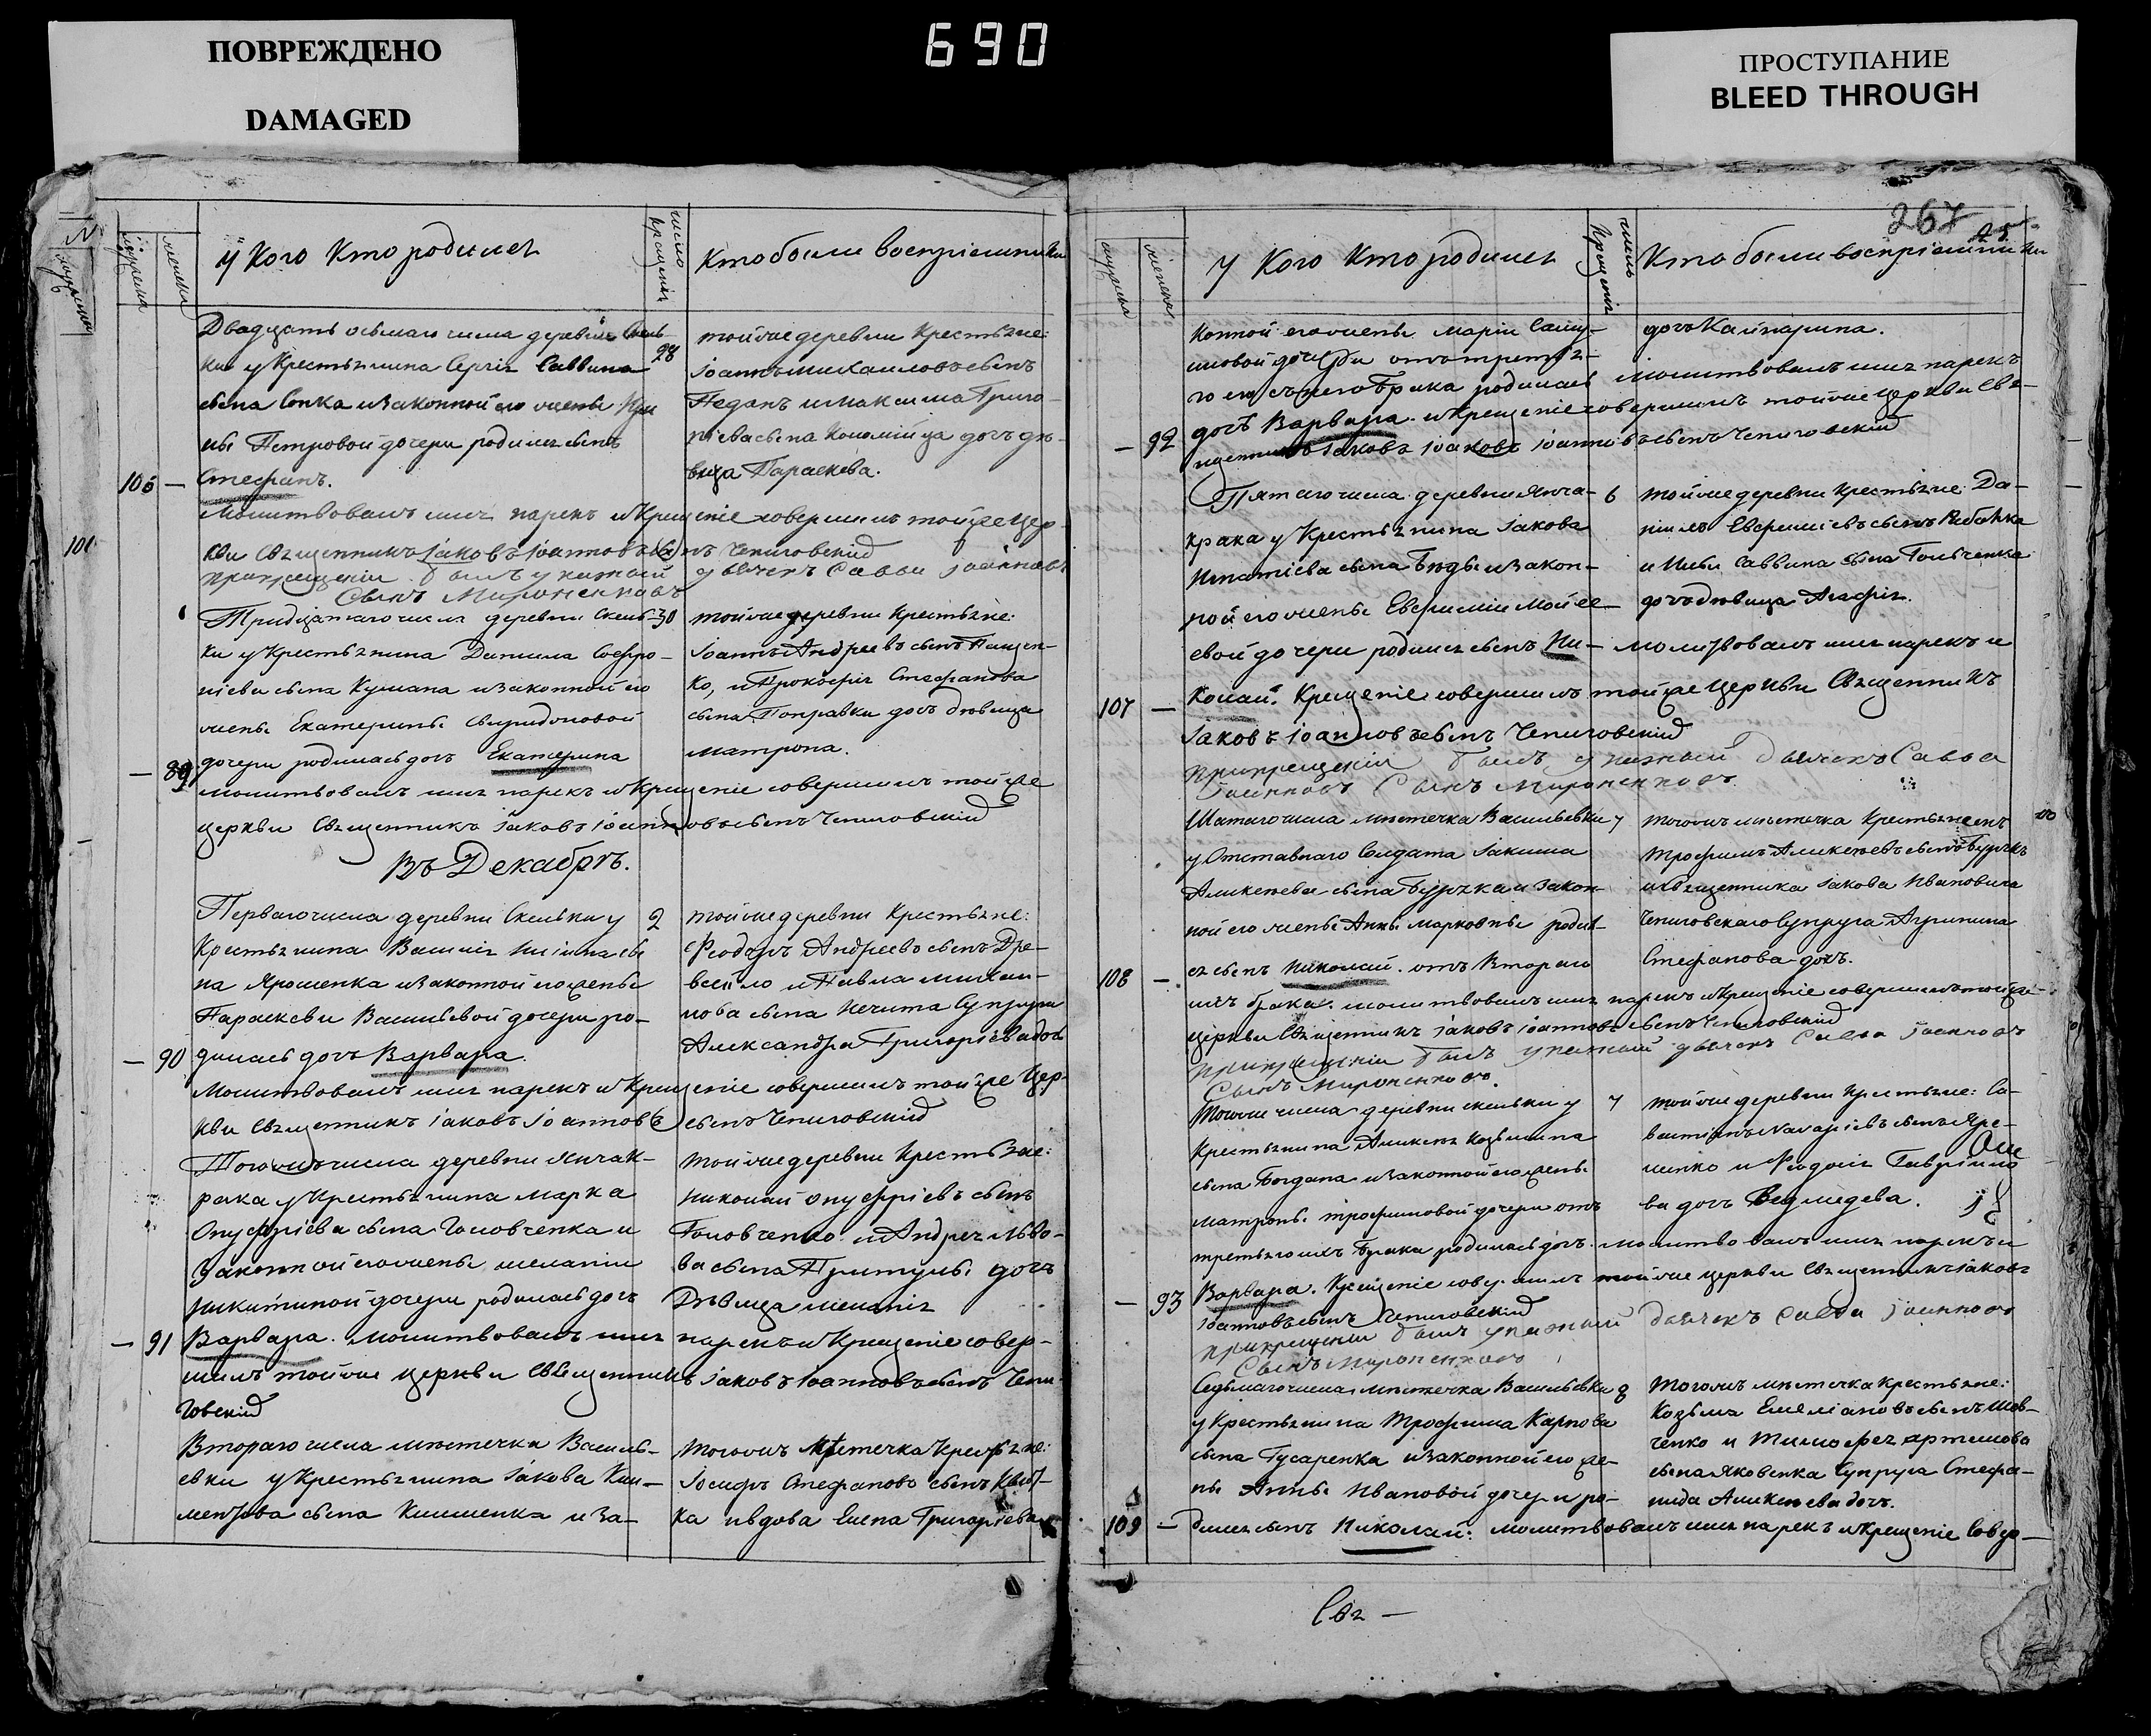 ПОВРЕЖДЕНО
DAMAGED
690
ПРОСТУПАНИЕ
BLEED THROUGH
У Кого Кто родился
число крещенія
Кто были воспріемники
Двадцать осьмаго числа деревни Скель-
ки у Крестьянина Сергія Саввина
сына Сопка и законной его жены
ны Петровой дочери родился сынъ
106 — Стефанъ.
28
тойже деревни Крестьяне:
Іоаннъ Михаиловъ сынъ
Педанъ и Максима Григо-
ріева сына дочь дѣ-
вица Параскева.
Молитвовалъ имя нарекъ и Крещеніе совершилъ тойже Цер-
кви Священникъ Іаковъ Іоанновъ сынъ Чениговскій
при крещеніи былъ дьячекъ Савва Іоанновъ
Сынъ Мироненковъ
101
Тридцатаго числа деревни Скель-
ки у Крестьянина Данила Софро-
ніева сына Кумана и законной его
жены Екатерины Спиридоновой
— 89 дочери родилась дочь Екатерина
30
тойже деревни Крестьяне:
Іоаннъ Андреевъ сынъ Пащен-
ко, и Прокофія Стефанова
сына Поправки дочь дѣвица
Матрона.
молитвовалъ имя нарекъ и Крещеніе совершилъ тойже
церкви Священникъ Іаковъ Іоанновъ сынъ Чениговскій
Въ Декабрѣ.
Перваго числа деревни Скельки у
Крестьянина Василія сы
на Ярошенка и законной его жены
Параскевы Васильевой дочери ро-
— 90 дилась дочь Варвара.
2
тойже деревни Крестьяне:
Феодоръ Андреевъ сынъ Дре-
и Павла Михаи-
лова сына Нечита Супруга
Александра Григоріева дочь
Молитвовалъ имя нарекъ и Крещеніе совершилъ тойже Цер-
кви Священникъ Іаковъ Іоанновъ сынъ Чениговскій
Тогожъ числа деревни Янчак-
рака у Крестьянина Марка
Онуфріева сына Головченка и
Законной его жены Меланіи
Никитиной дочери родилась дочь
тойже деревни Крестьяне:
Николай Онуфріевъ сынъ
Головченко и Андрея Льво-
ва сына Притулы дочь
Дѣвица Меланія
— 91 Варвара. молитвовалъ имя нарекъ и Крещеніе совер-
шилъ тойже церкви Священникъ Іаковъ Іоанновъ сынъ Чени-
говскій
Втораго числа мѣстечка Василь-
евки у Крестьянина Іакова Кли-
ментова сына Клименка и за-
тогожъ Мѣстечка Крестьяне:
Іосифъ Стефановъ сынъ Квит-
ка вдова Елена Григоріева
267
У Кого Кто родился
число Крещенія
Кто были воспріемники
конной его жены Маріи Саму-
иловой дочери отъ третья-
го его съ нею брака родилась
— 92 дочь Варвара. и Крещеніе совершилъ тойже церкви Свя-
щенникъ Іаковъ Іаковъ Іоанновъ сынъ Чениговскій
дочь Кайнарина.
молитвовалъ имя нарекъ
Пятаго числа деревни Янча-
крака у Крестьянина Іакова
Игнатіева сына Бѣды и закон-
ной его жены Евфиміи Мойсе-
евой дочери родился сынъ Ни-
6
тойже деревни Крестьяне: Да-
ніилъ Евфиміевъ сынъ Рыбалка
и Ильи Саввина сына Гонченка
дочь дѣвица Агафія.
молитвовалъ имя нарекъ и
107 — колай. Крещеніе совершилъ тойже Церкви Священникъ
Іаковъ Іоанновъ сынъ Чениговскій
при крещеніи былъ дьячекъ Савва
Іоанновъ Сынъ Мироненковъ
Шатаго числа мѣстечка Васильевки
у Отставнаго Солдата Іакима
Алексѣева сына Бурячка и закон-
ной его жены Анны Марковны родил-
108 — ся сынъ Николай. отъ Втораго
7
тогожъ мѣстечка Крестьянинъ
Трофимъ Алексѣевъ сынъ Бурячкъ
и Священника Іакова Ивановича
Чениговскаго Супруга Агрипина
Стефанова дочь.
ихъ брака. молитвовалъ имя нарекъ и Крещеніе совершилъ тойже
церкви Священникъ Іаковъ Іоанновъ сынъ Чениговскій
при крещеніи былъ дьячекъ Савва Іоанновъ
Сынъ Мироненковъ.
Тогоже числа деревни Скельки у
Крестьянина Алексѣя Козьмина
сына Богдана и законной его жены
Матроны Трофимовой дочери отъ
третьяго ихъ брака родилась дочь
7
тойже деревни Крестьяне: Са-
Назаріевъ сынъ Яре-
менко и Феодосія Гавріило
ва дочь Ведмедева.
молитвовалъ имя нарекъ и
— 93 Варвара. Крещеніе совершилъ тойже церкви Священникъ Іаковъ
Іоанновъ сынъ Чениговскій
при крещеніи былъ дьячекъ Савва Іоанновъ
Сынъ Мироненковъ
Седьмаго числа мѣстечка Васильевки
у Крестьянина Трофима Карпова
сына Гусаренка и законной его же-
ны Анны Ивановой дочери ро-
8
тогожъ мѣстечка Крестьяне:
Козьма Емеліановъ сынъ Шев-
ченко и Тимофея Артемова
сына Яковенка Супруга Стефа-
нида Алексѣева дочь.
109 — дился сынъ Николай: молитвовалъ имя нарекъ и Крещеніе Совер-
Свя —